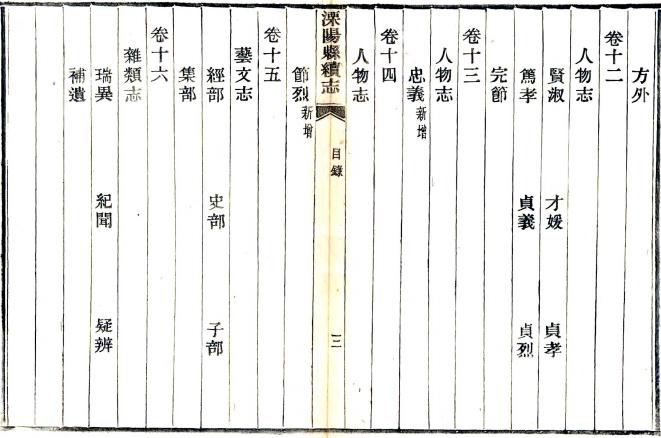 方外
卷十二
人物志
賢淑 才媛 貞孝
篤孝 貞義 貞烈
完節
卷十三
人物志
忠義新增
卷十四
人物志
溧陽縣續志 目錄 三
節烈新增
卷十五
藝文志
經部 史部 子部
集部
卷十六
雜類志
瑞異 紀聞 疑辨
補遺